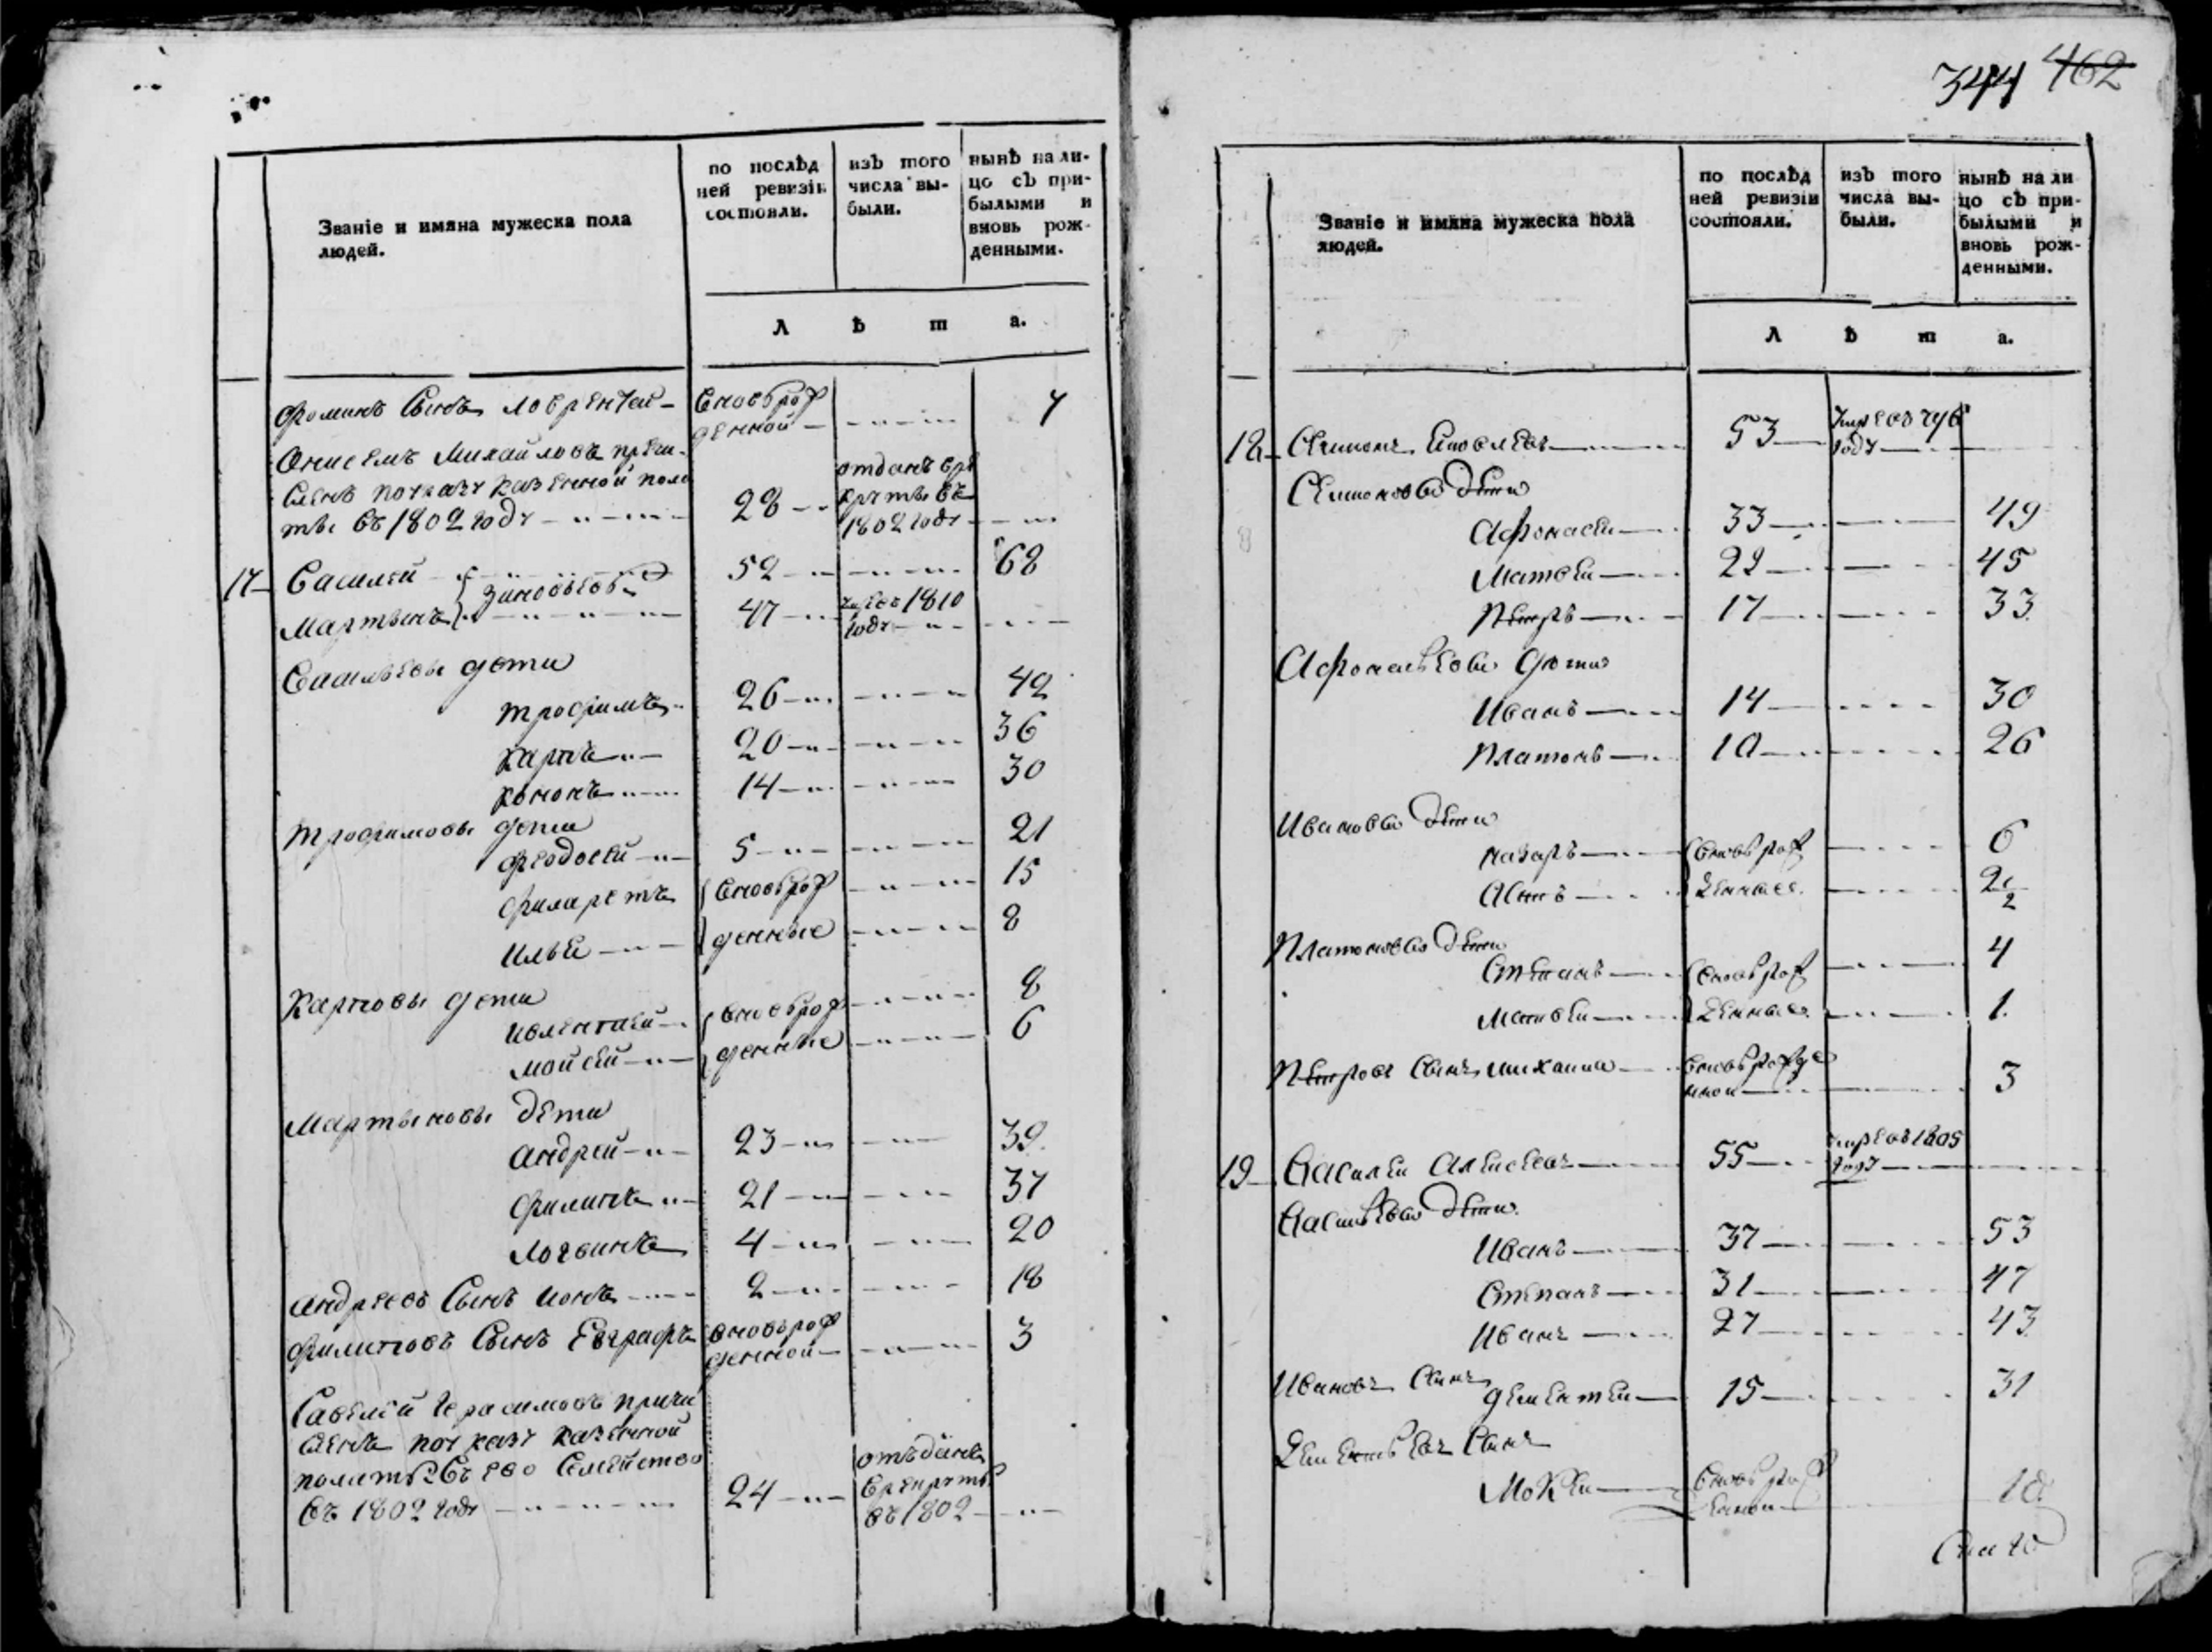 Званіе и имяна мужеска пола
людей.
по послѣд
ней ревизіи
состояли.
изъ того
числа вы-
были.
нынѣ на ли-
цо съ при-
былыми и
вновь рож-
денными.
Л ѣ т а.
Фоминъ Сынъ Лаврентей вновь рож
денной 7
Онисемъ Михайловъ причи
сленъ по указу казенной пала
ты въ 1802 году 28 отданъ в ре
круты въ
1802 году
17 Василей 52 68
Зиновьевы
Мартынъ 47 умре въ 1810
году
Васильевы дети
Трофимъ 26 42
Карпъ 20 36
Кононъ 14 30
Трофимовы дети
Феодосей 5 21
Филаретъ вновь рож 15
Илья денные 8
Карповы дети
вновь рож 8
Мойсей денные 6
Мартыновы дети
Андрей 23 39
Филипъ 21 37
Логвинъ 4 20
Андреевъ Сынъ Иона 2 18
Филиповъ Сынъ Евграфъ вновь рож
денной 3
Савелей Герасимовъ причи
сленъ по указу казенной
палаты въ ево Семейство
въ 1802 году 24 отъданъ
в рекруты
въ 1802
344 462
Званіе и имяна мужеска пола
людей.
по послѣд
ней ревизіи
состояли.
изъ того
числа вы-
были.
нынѣ на ли
цо съ при-
былыми и
вновь рож-
денными.
Л ѣ т а.
18 Симонъ Яковлевъ 53 умре въ 796
году
Симоновы дети
Афонасей 33 49
Матвей 29 45
Петръ 17 33
Афонасьевы дети
Иванъ 14 30
Платонъ 10 26
Ивановы дети
Назаръ вновь рож 6
денные 2 1/2
Платоновы дети
Степанъ вновь рож 4
Матвей денные 1
Петровъ Сынъ Михайла вновь рожде
нной 3
19 Василей Алексеевъ 55 умре въ 1805
году
Васильевы дети
Иванъ 37 53
Степанъ 31 47
Иванъ 27 43
Ивановъ Сынъ
Дементей 15 31
Дементьевъ Сынъ
Мокей вновь рож
денной 10